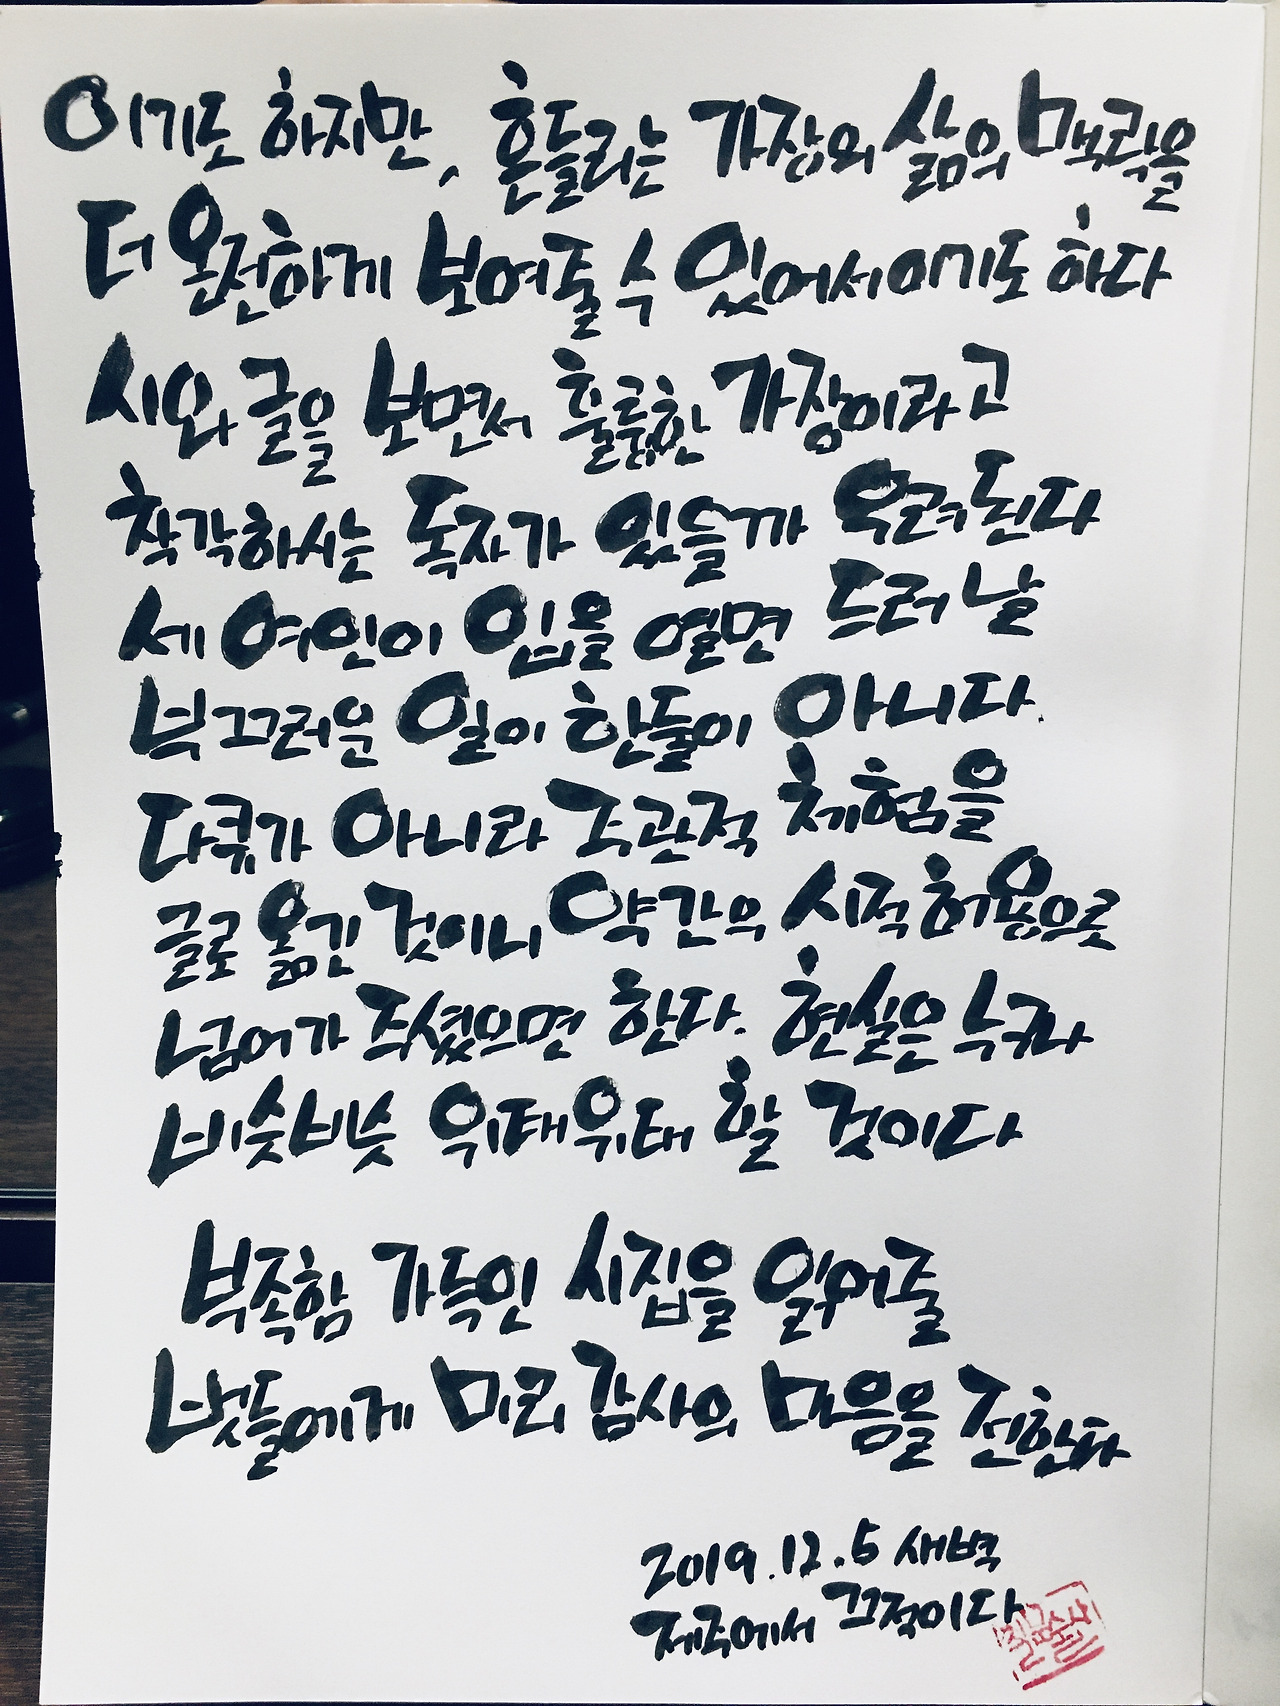 이기도 하지만, 흔들리는 가장의 삶의 맥락을
더 온전하게 보여줄 수 있어서이기도 하다
시와 글을 보면서 훌륭한 가장이라고
착각하시는 독자가 있을까 우려된다
세 여인이 입을 열면 드러날
부끄러운 일이 한둘이 아니다.
다큐가 아니라 주관적 체험을
글로 옮긴 것이니 약간의 시적허용으로
넘어가 주셨으면 한다. 현실은 누구나
비슷비슷 위태위태 할 것이다
부족함 가득인 시집을 읽어줄
벗들에게 미리 감사의 마음을 전한다
2019.12.5 새벽
제주에서 끄적이다